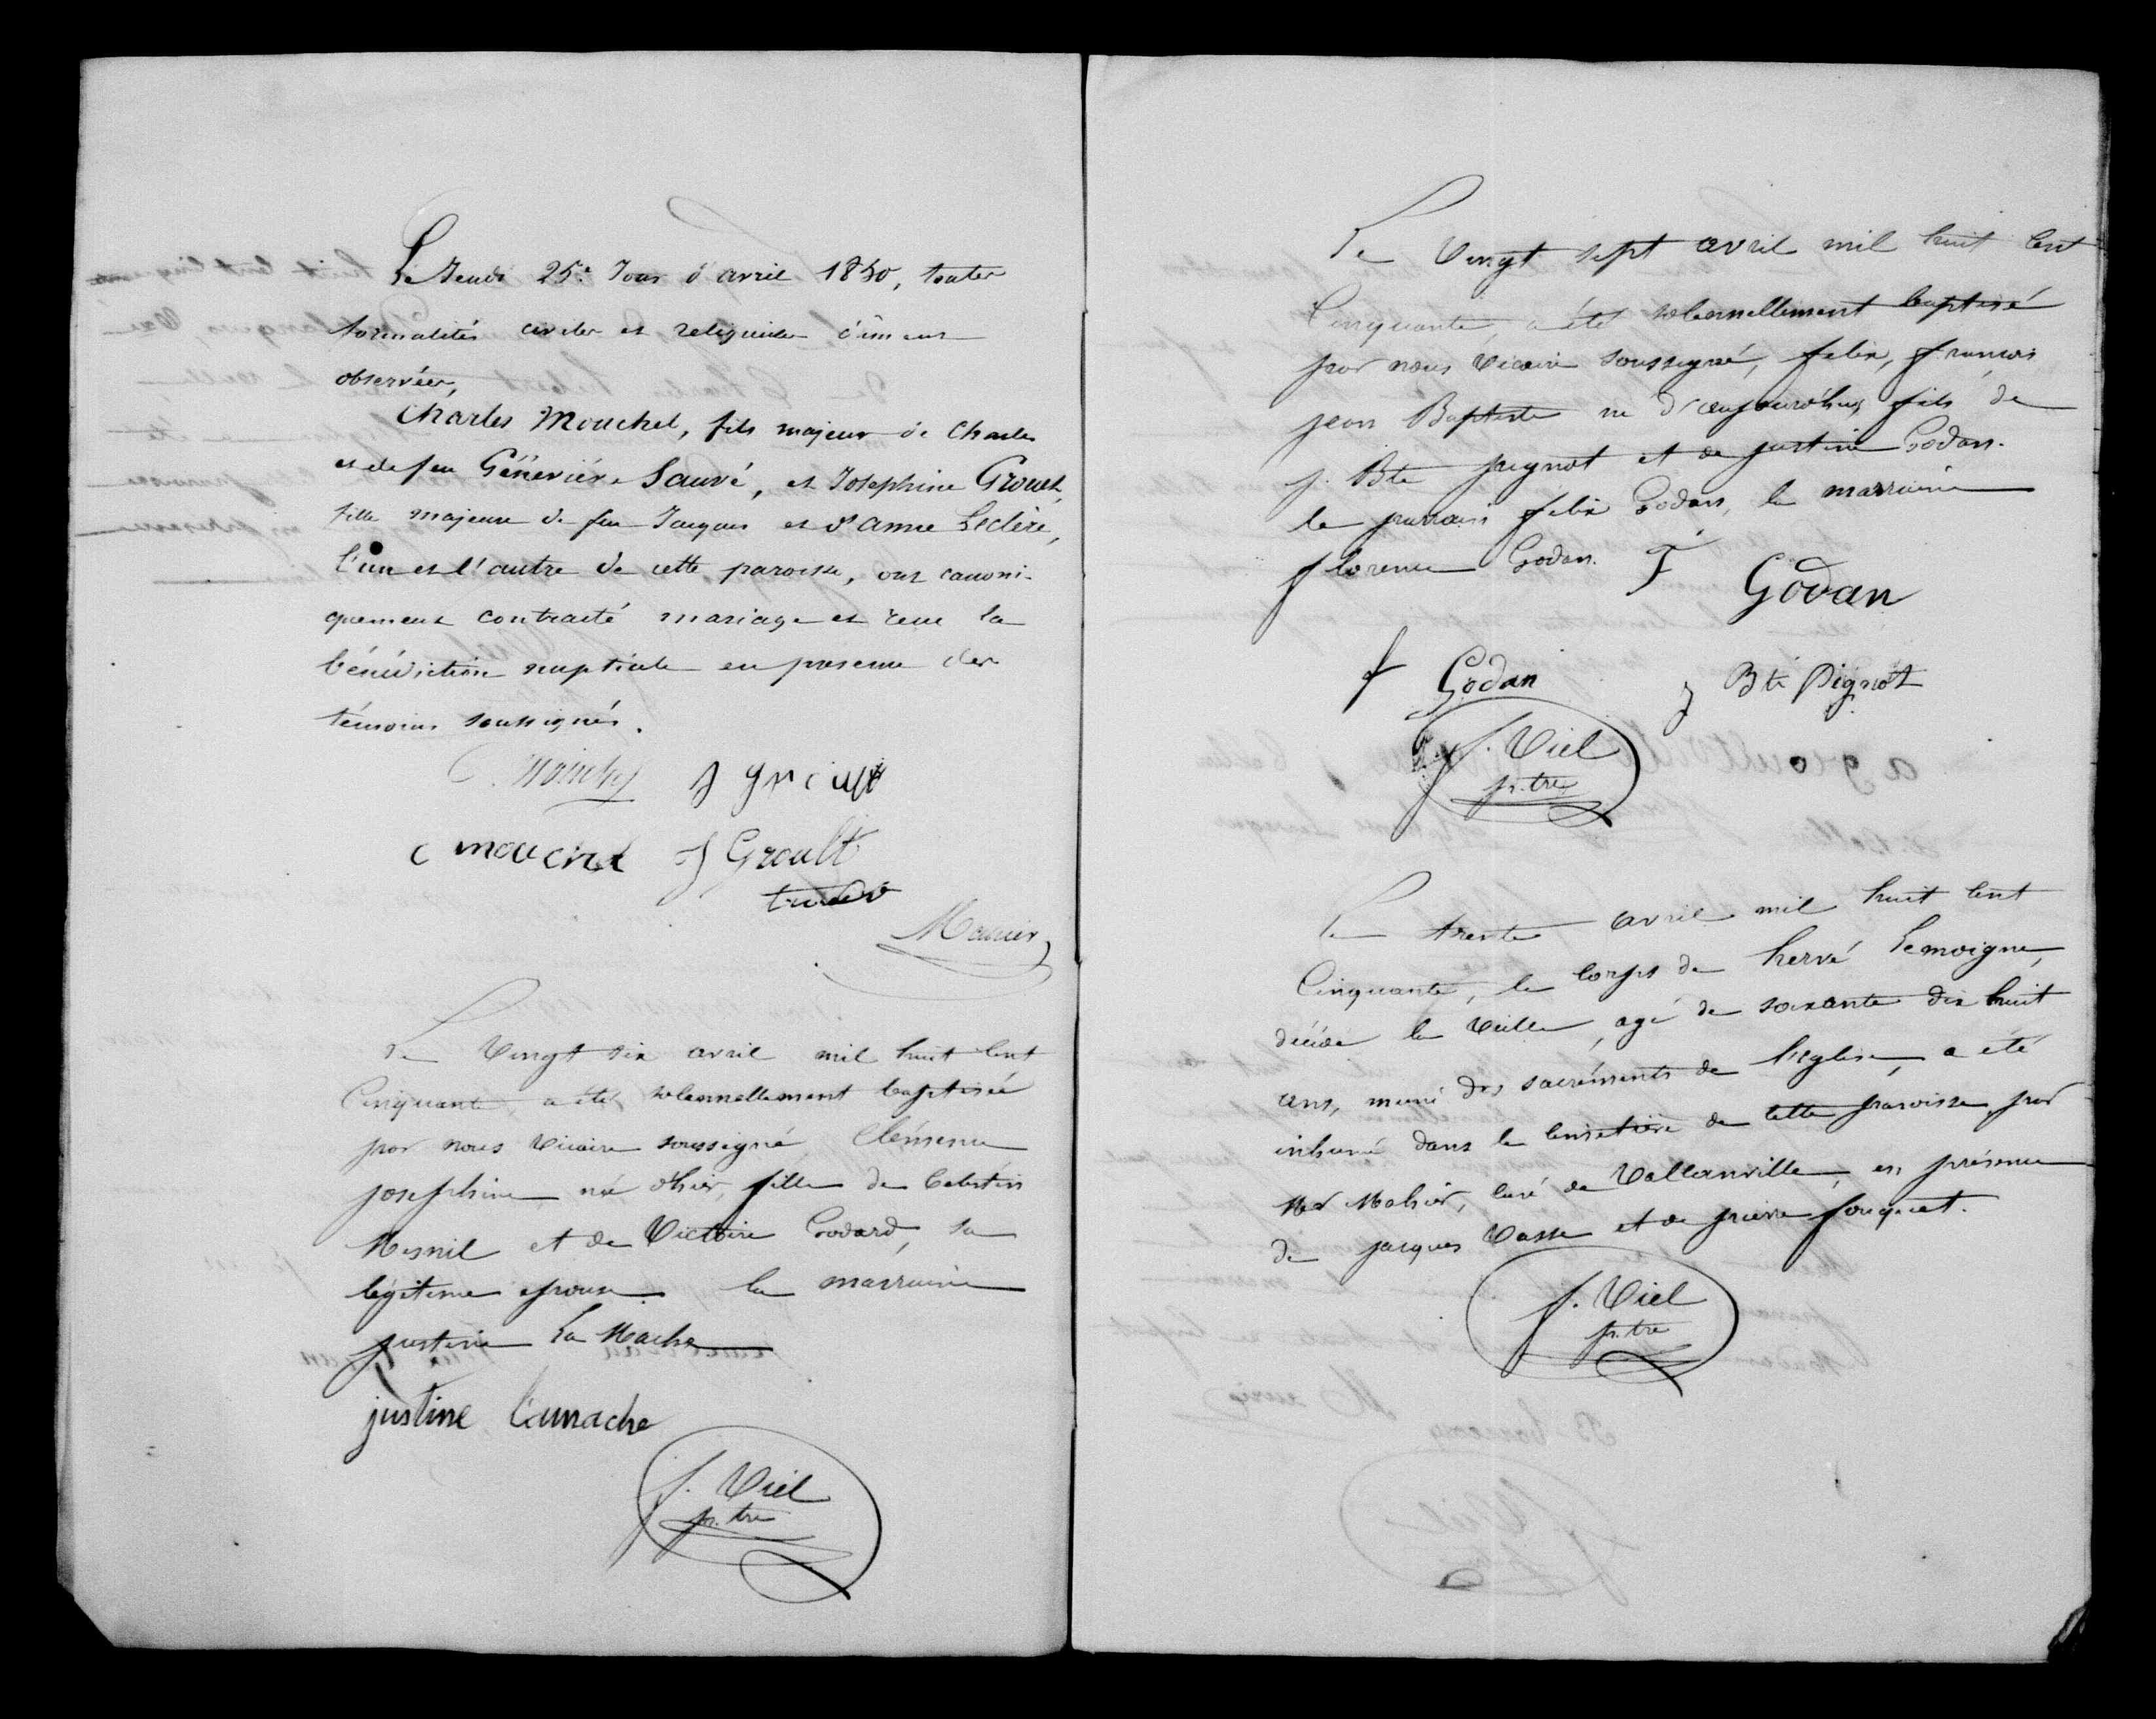 Le Jeudi 25e Jour d'avril 1850, toutes
formalités civiles et religieuses dûment
observées,
Charles Mouchel, fils majeur de Charles
et de feu Géneviève Sauvé, et Joséphine Groult,
fille majeure de feu Jacques et d'anne Leclère,
l'une et l'autre de cette paroisse, ont canoni-
quement contracté mariage et reçu la
bénédiction nuptiale en présence des
témoins soussignés.
C. Mouchel J groult
c mouchel J Groult
Le Vingt six avril mil huit Cent
Cinquante, a été solennellement baptisée
par nous Vicaire soussigné Clémence
josephine née d'hier, fille de Celestin
Mesnil et de Victoire Godard, sa
légitime épouse. la marraine
justine La Mache
justine lamache
f. Viel
p.tre
Le Vingt sept avril mil huit Cent
Cinquante, a été solennellement baptisé
par nous Vicaire soussigné, felix, françois
jean Baptiste né d'aujourd'hui, fils de
j. Bte pignot et de justine Godan.
le parrain felix Godan, la marraine
florence Godan. F Godan
f Godan j Bte Pignot
f. Viel
p.tre
Le trente avril mil huit Cent
Cinquante, le corps de hervé Lemoigne,
décédé la Veille, agé de soixante dix huit
ans, muni des sacréments de l'église, a été
inhumé dans le Cimetière de Cette paroisse par
Mr Mahier, Curé de Valcanville, en présence
de jacques Vasse et de pierre fouquet.
f. Viel
p.tre